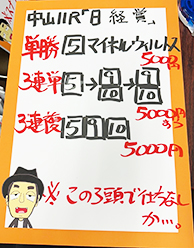 中山11R「日経賞」
単勝 5 マイネルウィルトス
500円
3連単 5→9 10→9 10
5000円
3連複 5 9 10
5000円
※この3頭で仕方なし
か…。